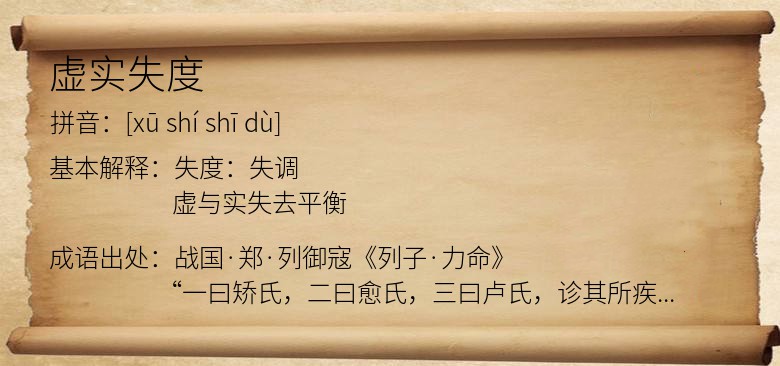 虚实失度
拼音：[xū shí shī dù]
基本解释：失度：失调
虚与实失去平衡
成语出处：战国·郑·列御寇《列子·力命》
“一曰矫氏，二曰愈氏，三曰卢氏，诊其所疾...